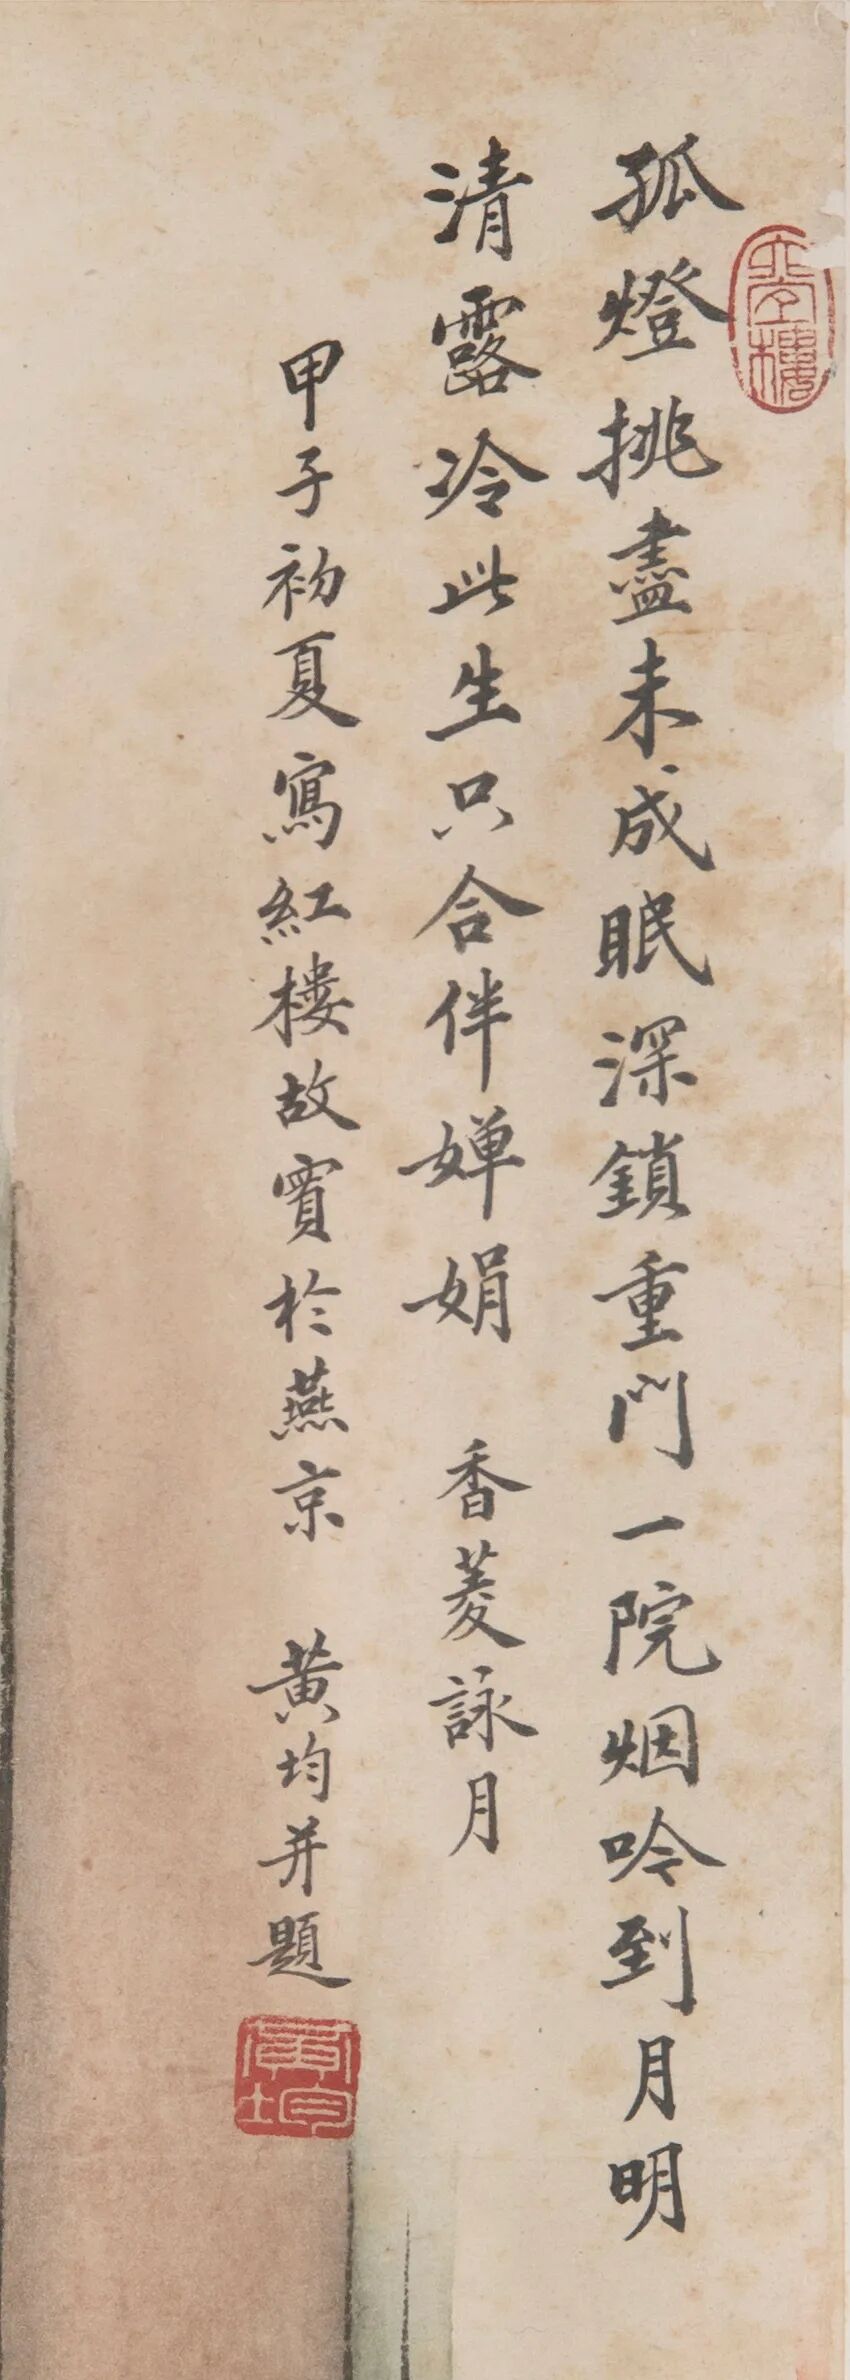 孤燈挑盡未成眠深鎖重門一院烟吟到月明
清露冷此生只合伴婵娟 香菱詠月
甲子初夏寫紅楼故實於燕京 黄均并題
黄均